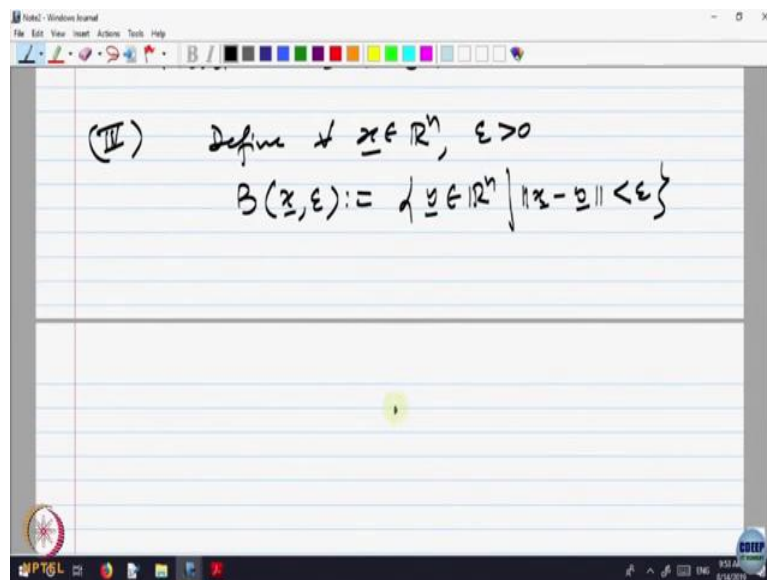 Note2 - Windows Journal
File Edit View Insert Actions Tools Help
B I
(IV) Define ∀ x ∈ ℝⁿ, ε > 0
B(x, ε) := { y ∈ ℝⁿ | ||x - y|| < ε }
NPTEL
CDEEP
ENG
8/14/2019